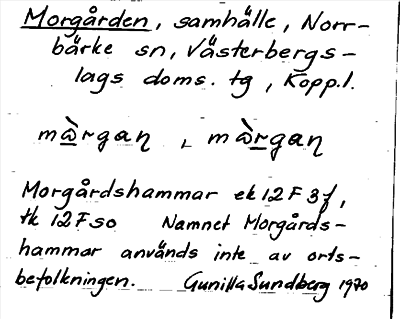 Morgården, samhälle, Norr-
bärke sn, Västerbergs-
lags doms. tg, Kopp.l.
màrgaɳ, màrgaɳ
Morgårdshammar ek 12 F 3f,
tk 12 F so Namnet Morgårds-
hammar används inte av orts-
befolkningen. Gunilla Sundberg 1970